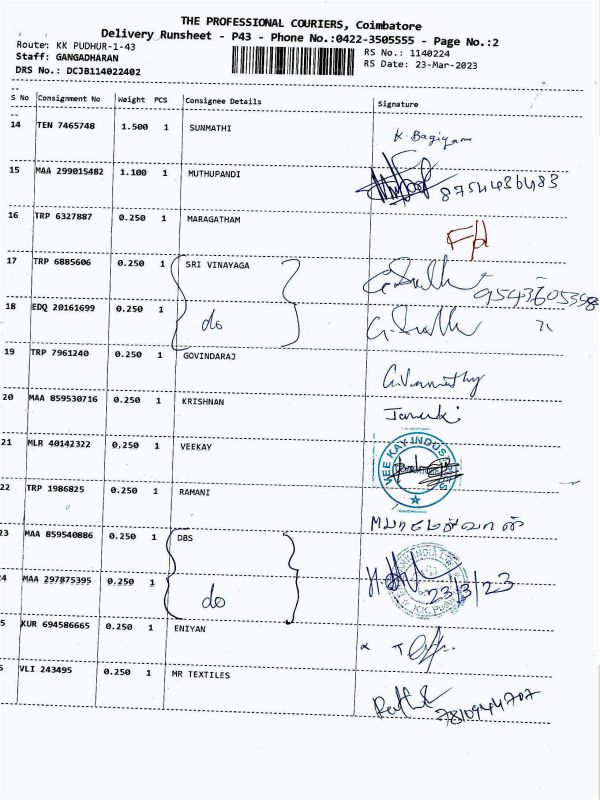 THE PROFESSIONAL COURIERS, Coimbatore
Delivery Runsheet - P43 - Phone No.:0422-3505555 - Page No.:2
Route: KK PUDHUR-1-43
RS No.: 1140224
Staff: GANGADHARAN
RS Date: 23-Mar-2023
DRS No.: DCJB114022402
S No Consignment No Weight PCS Consignee Details Signature
14 TEN 7465748 1.500 1 SUNMATHI K. Bagiyam
15 MAA 299015482 1.100 1 MUTHUPANDI 8754436483
16 TRP 6327887 0.250 1 MARAGATHAM
17 TRP 6885606 0.250 1 SRI VINAYAGA 9543605398
18 EDQ 20161699 0.250 1 do
19 TRP 7961240 0.250 1 GOVINDARAJ
20 MAA 859530716 0.250 1 KRISHNAN Janaki
21 MLR 40142322 0.250 1 VEEKAY VEE KAY INDUSTRIES
22 TRP 1986825 0.250 1 RAMANI
23 MAA 859540886 0.250 1 DBS
4 MAA 297875395 0.250 1 do 23/3/23
5 KUR 694586665 0.250 1 ENIYAN
VLI 243495 0.250 1 MR TEXTILES 7810944707